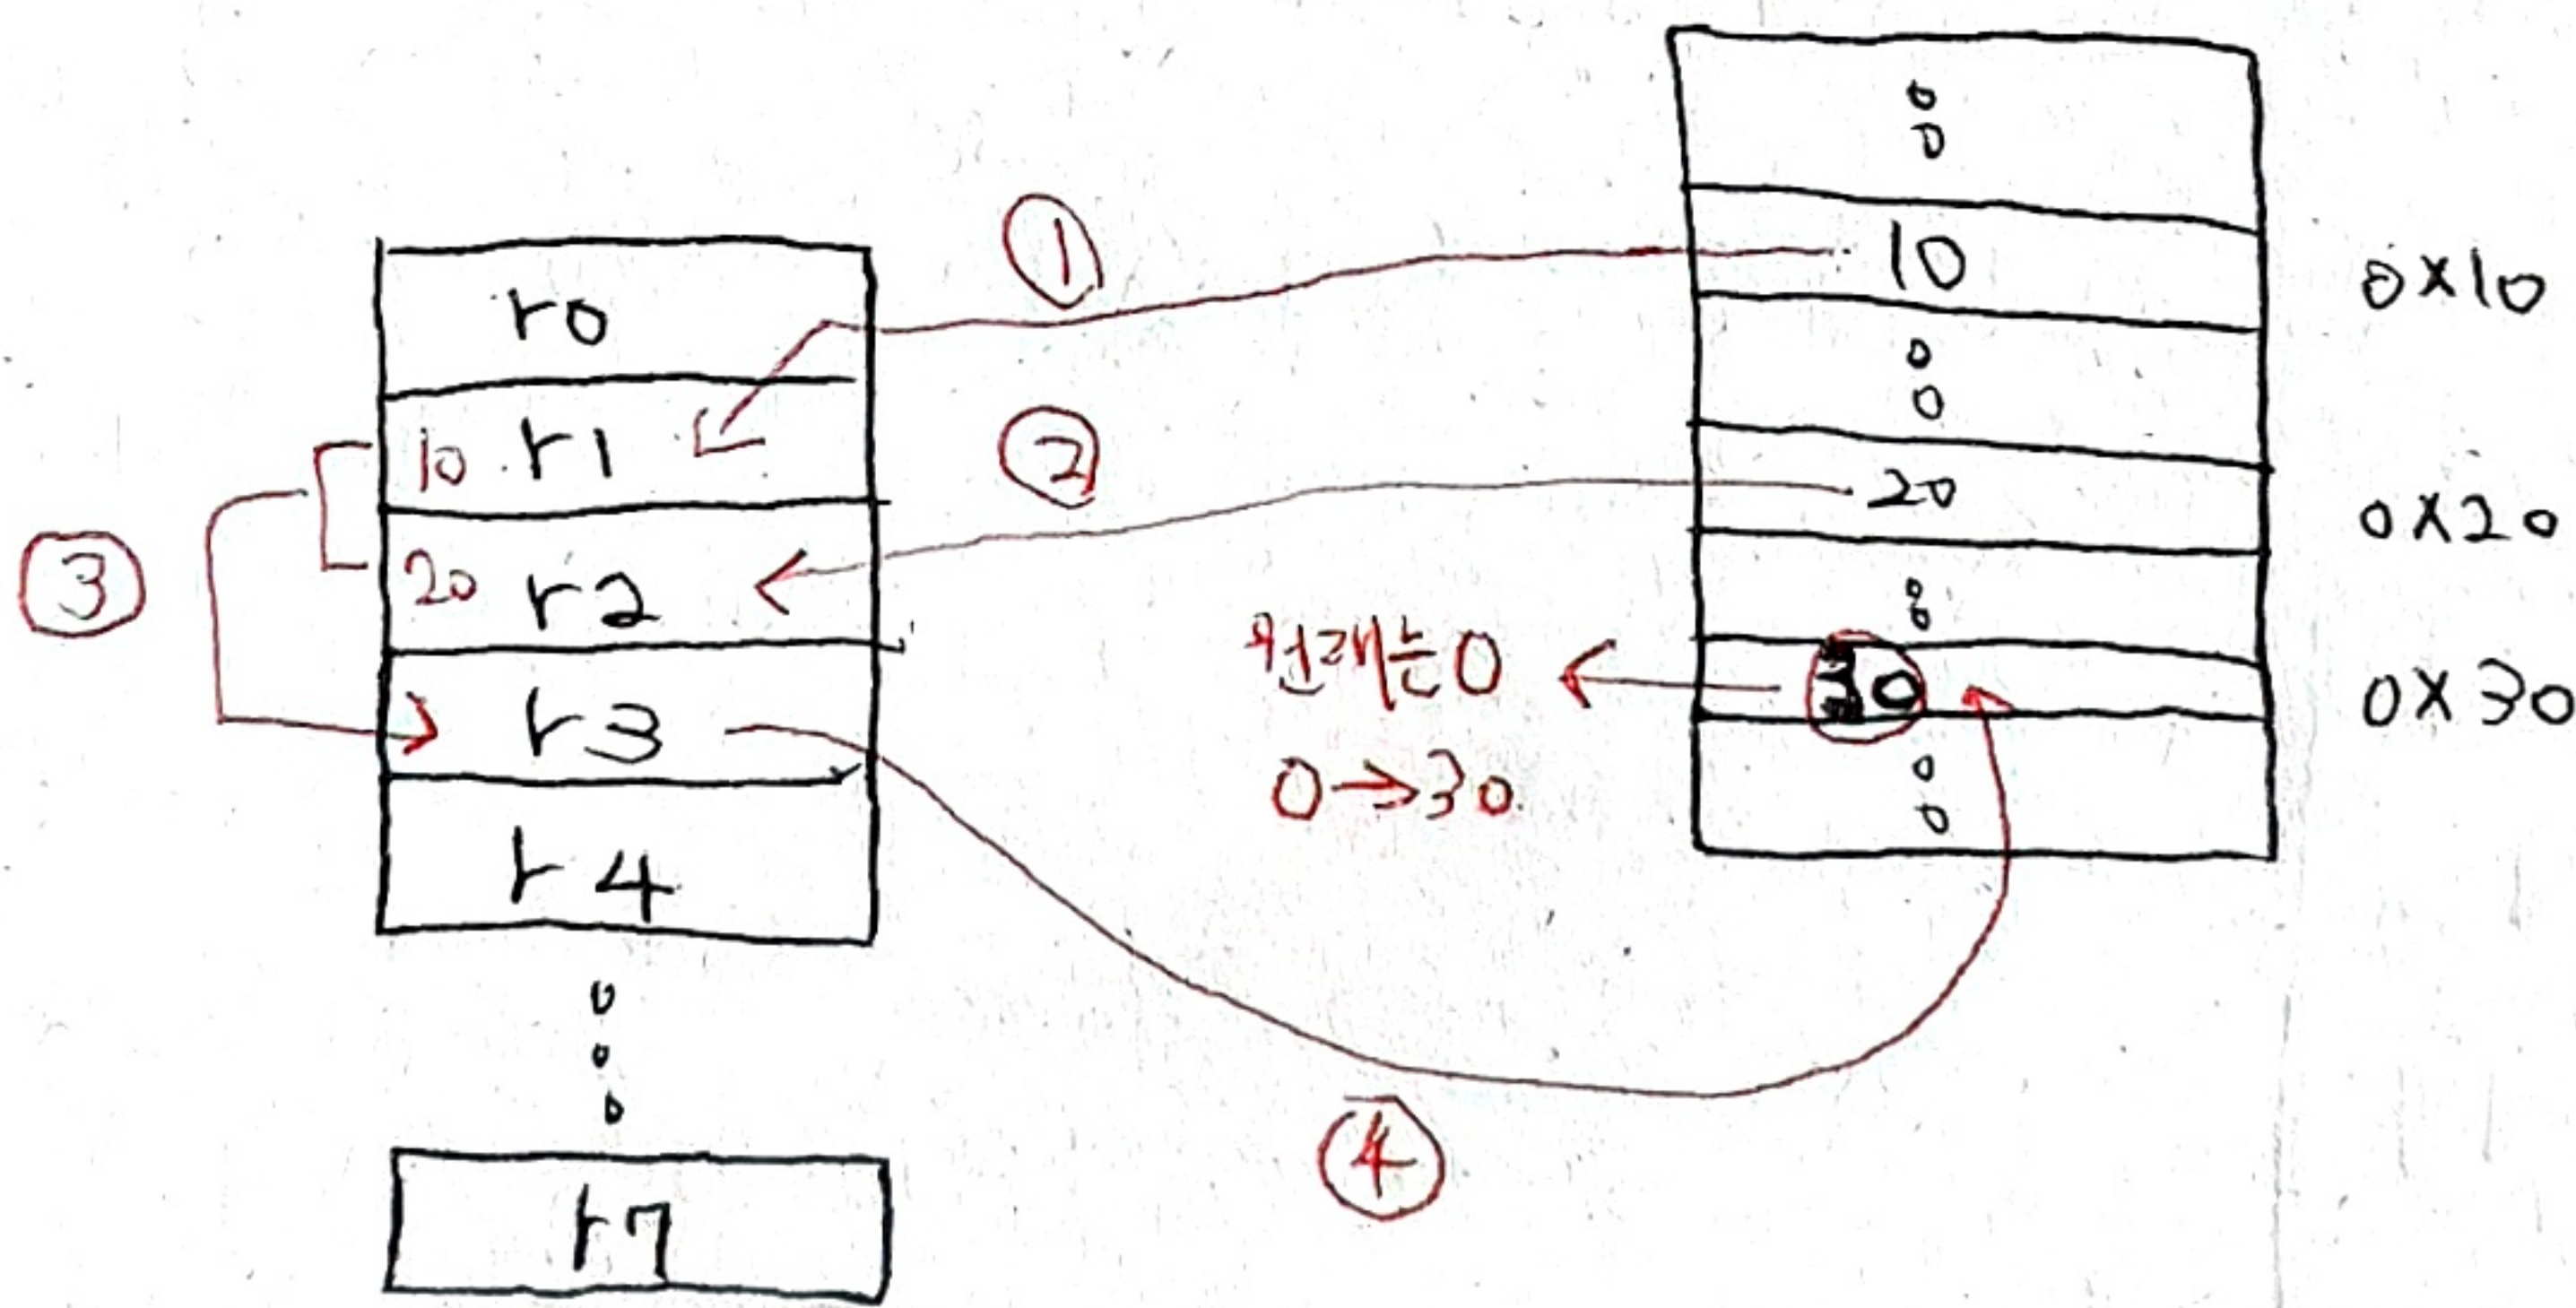 r0
10 r1
20 r2
r3
r4
r7
①
②
③
④
10
20
30
0x10
0x20
0x30
원래는 0
0→30